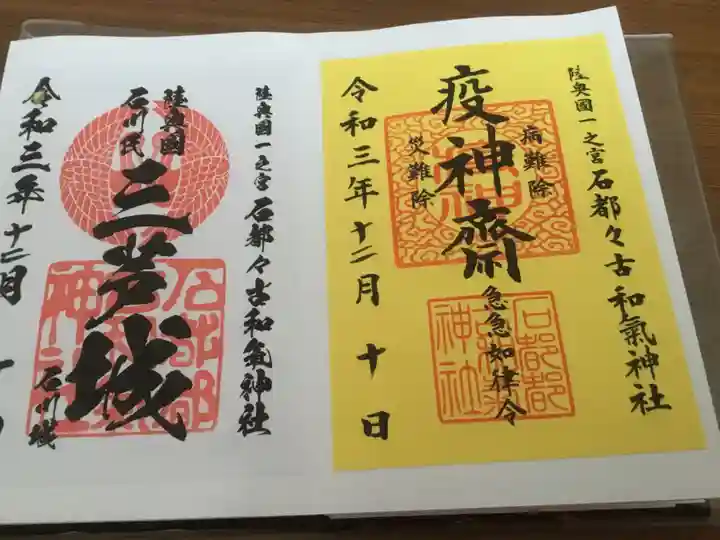 陸奥國一之宮 石都々古和氣神社
病難除
疫神齋
災難除
急急如律令
石都都
神社
令和三年十二月十日
陸奥國一之宮 石都々古和氣神社
陸奥國
石川氏
三芦城
石川城
石都都
神社
令和三年十二月十